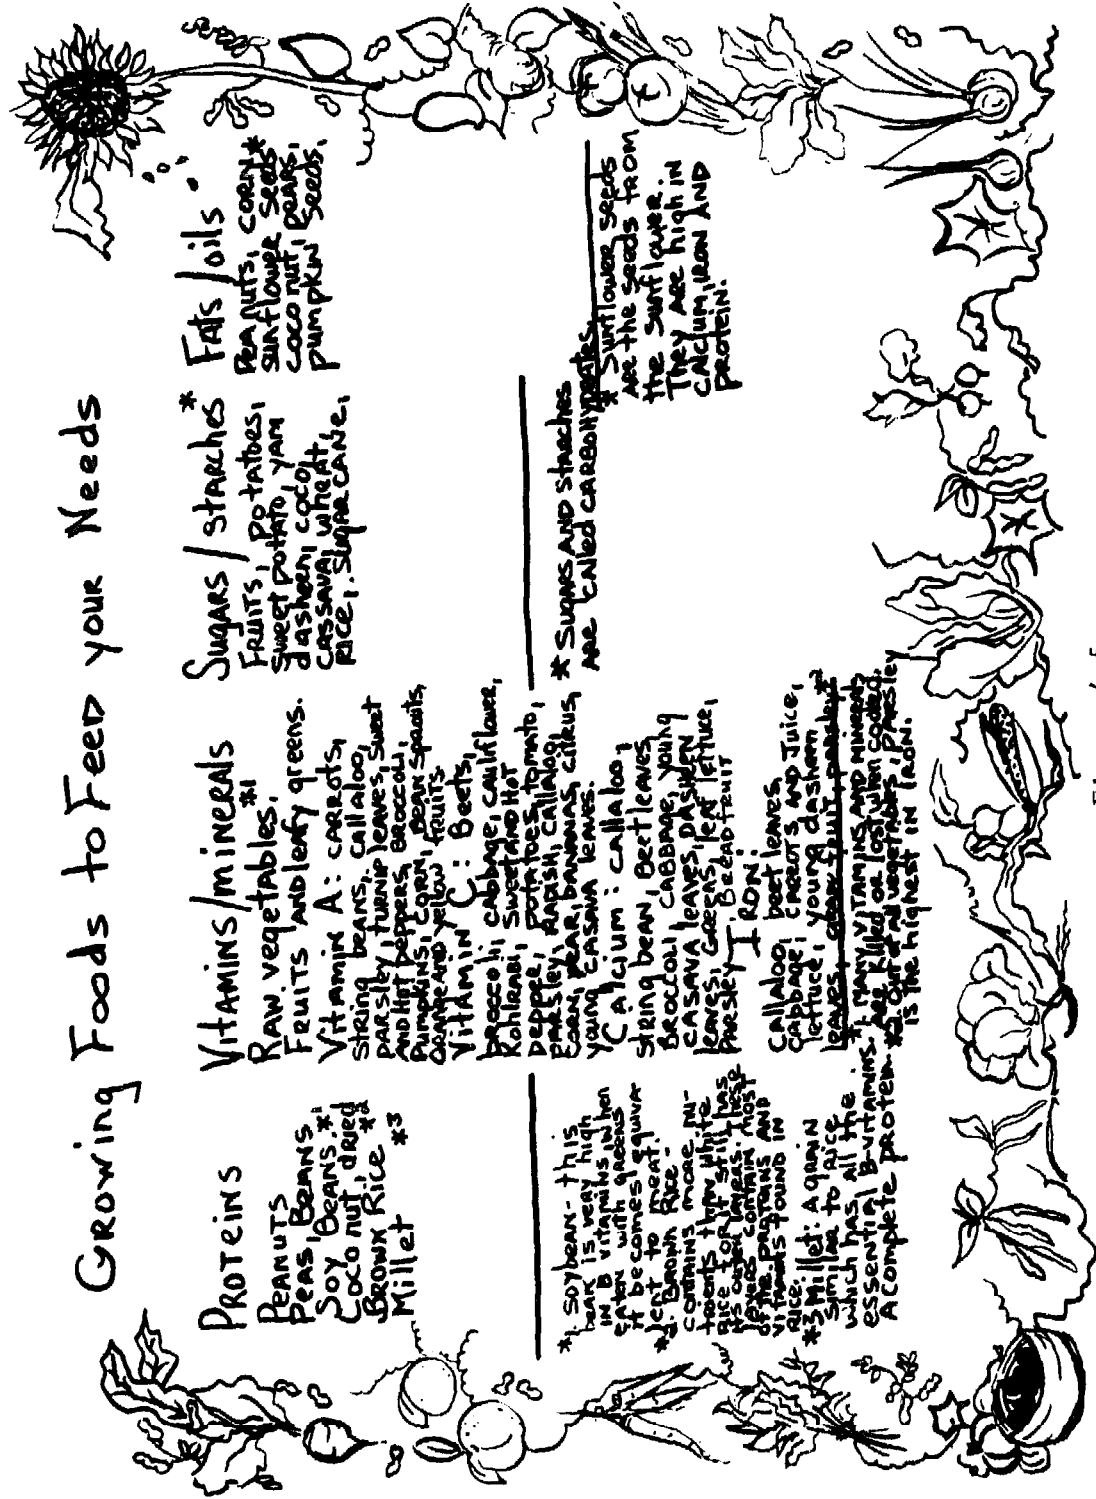 GROWING FOODS to FEED YOUR NEEDS
PROTEINS
PEANUTS
PEAS, BEANS
SOY BEANS, *1
COCONUT, dRIED
BROWN RICE *2
MILLET *3
*1. SOYBEAN - this
bEAK IS VERY high
IN B VITAMINS. WHEN
EATEN WITH GREENS
it becomes EQUIVA-
lENT to MEAT.
*2. BROWN RICE -
CONTAINS MORE NU-
TRIENTS THAN WHITE
RICE FOR IT STILL HAS
ITS OUTER LAYERS. THESE
LAYERS CONTAIN MOST
OF THE PROTEINS AND
VITAMINS FOUND IN
RICE.
*3 Millet: A GRAIN
SIMILAR TO RICE
which HAS All the
ESSENTIAL B-VITAMINS.
A COMPLETE PROTEIN.
VITAMINS/MINERALS
RAW VEGETABLES, *1
FRUITS AND leafy greens.
VITAMIN A: CARROTS,
STRING BEANS, CALLALOO,
PARSLEY, TURNIP LEAVES, SWEET
AND HOT PEPPERS, BROCCOLI,
PUMPKINS, CORN, BEAN SPROUTS,
ORANGE AND YELLOW FRUITS.
VITAMIN C: BEETS,
BROCCOLI, CABBAGE, CAULIFLOWER,
KOHLRABI, SWEET AND HOT
PEPPER, POTATOES, TOMATO,
PARSLEY, RADISH, CALLALOO,
CORN, PEAR, BANANAS, CITRUS,
YOUNG CASAVA LEAVES.
CALCIUM: CALLALOO,
STRING BEAN, BEET LEAVES,
BROCCOLI, CABBAGE, YOUNG
CASAVA LEAVES, DASHEEN
LEAVES, GREENS, LEAF LETTUCE,
PARSLEY, BREADFRUIT
IRON:
CALLALOO, BEET LEAVES,
CABBAGE, CARROTS AND JUICE,
LETTUCE, YOUNG DASHEEN
LEAVES, PARSLEY *2
*1 MANY VITAMINS AND MINERALS
ARE KILLED OR LOST WHEN COOKED.
*2 OUT OF ALL VEGETABLES, PARSLEY
IS THE HIGHEST IN IRON.
SUGARS/STARCHES *
FRUITS, POTATOES,
SWEET POTATO, YAM
DASHEEN, COCO,
CASSAVA, WHEAT,
RICE, SUGAR CANE,
* SUGARS AND STARCHES
ARE CALLED CARBOHYDRATES.
FATS/OILS
PEANUTS, CORN
SUNFLOWER SEEDS*
COCONUT, PEARS,
PUMPKIN SEEDS,
* SUNFLOWER SEEDS
ARE THE SEEDS FROM
THE SUNFLOWER.
THEY ARE HIGH IN
CALCIUM, IRON AND
PROTEIN.